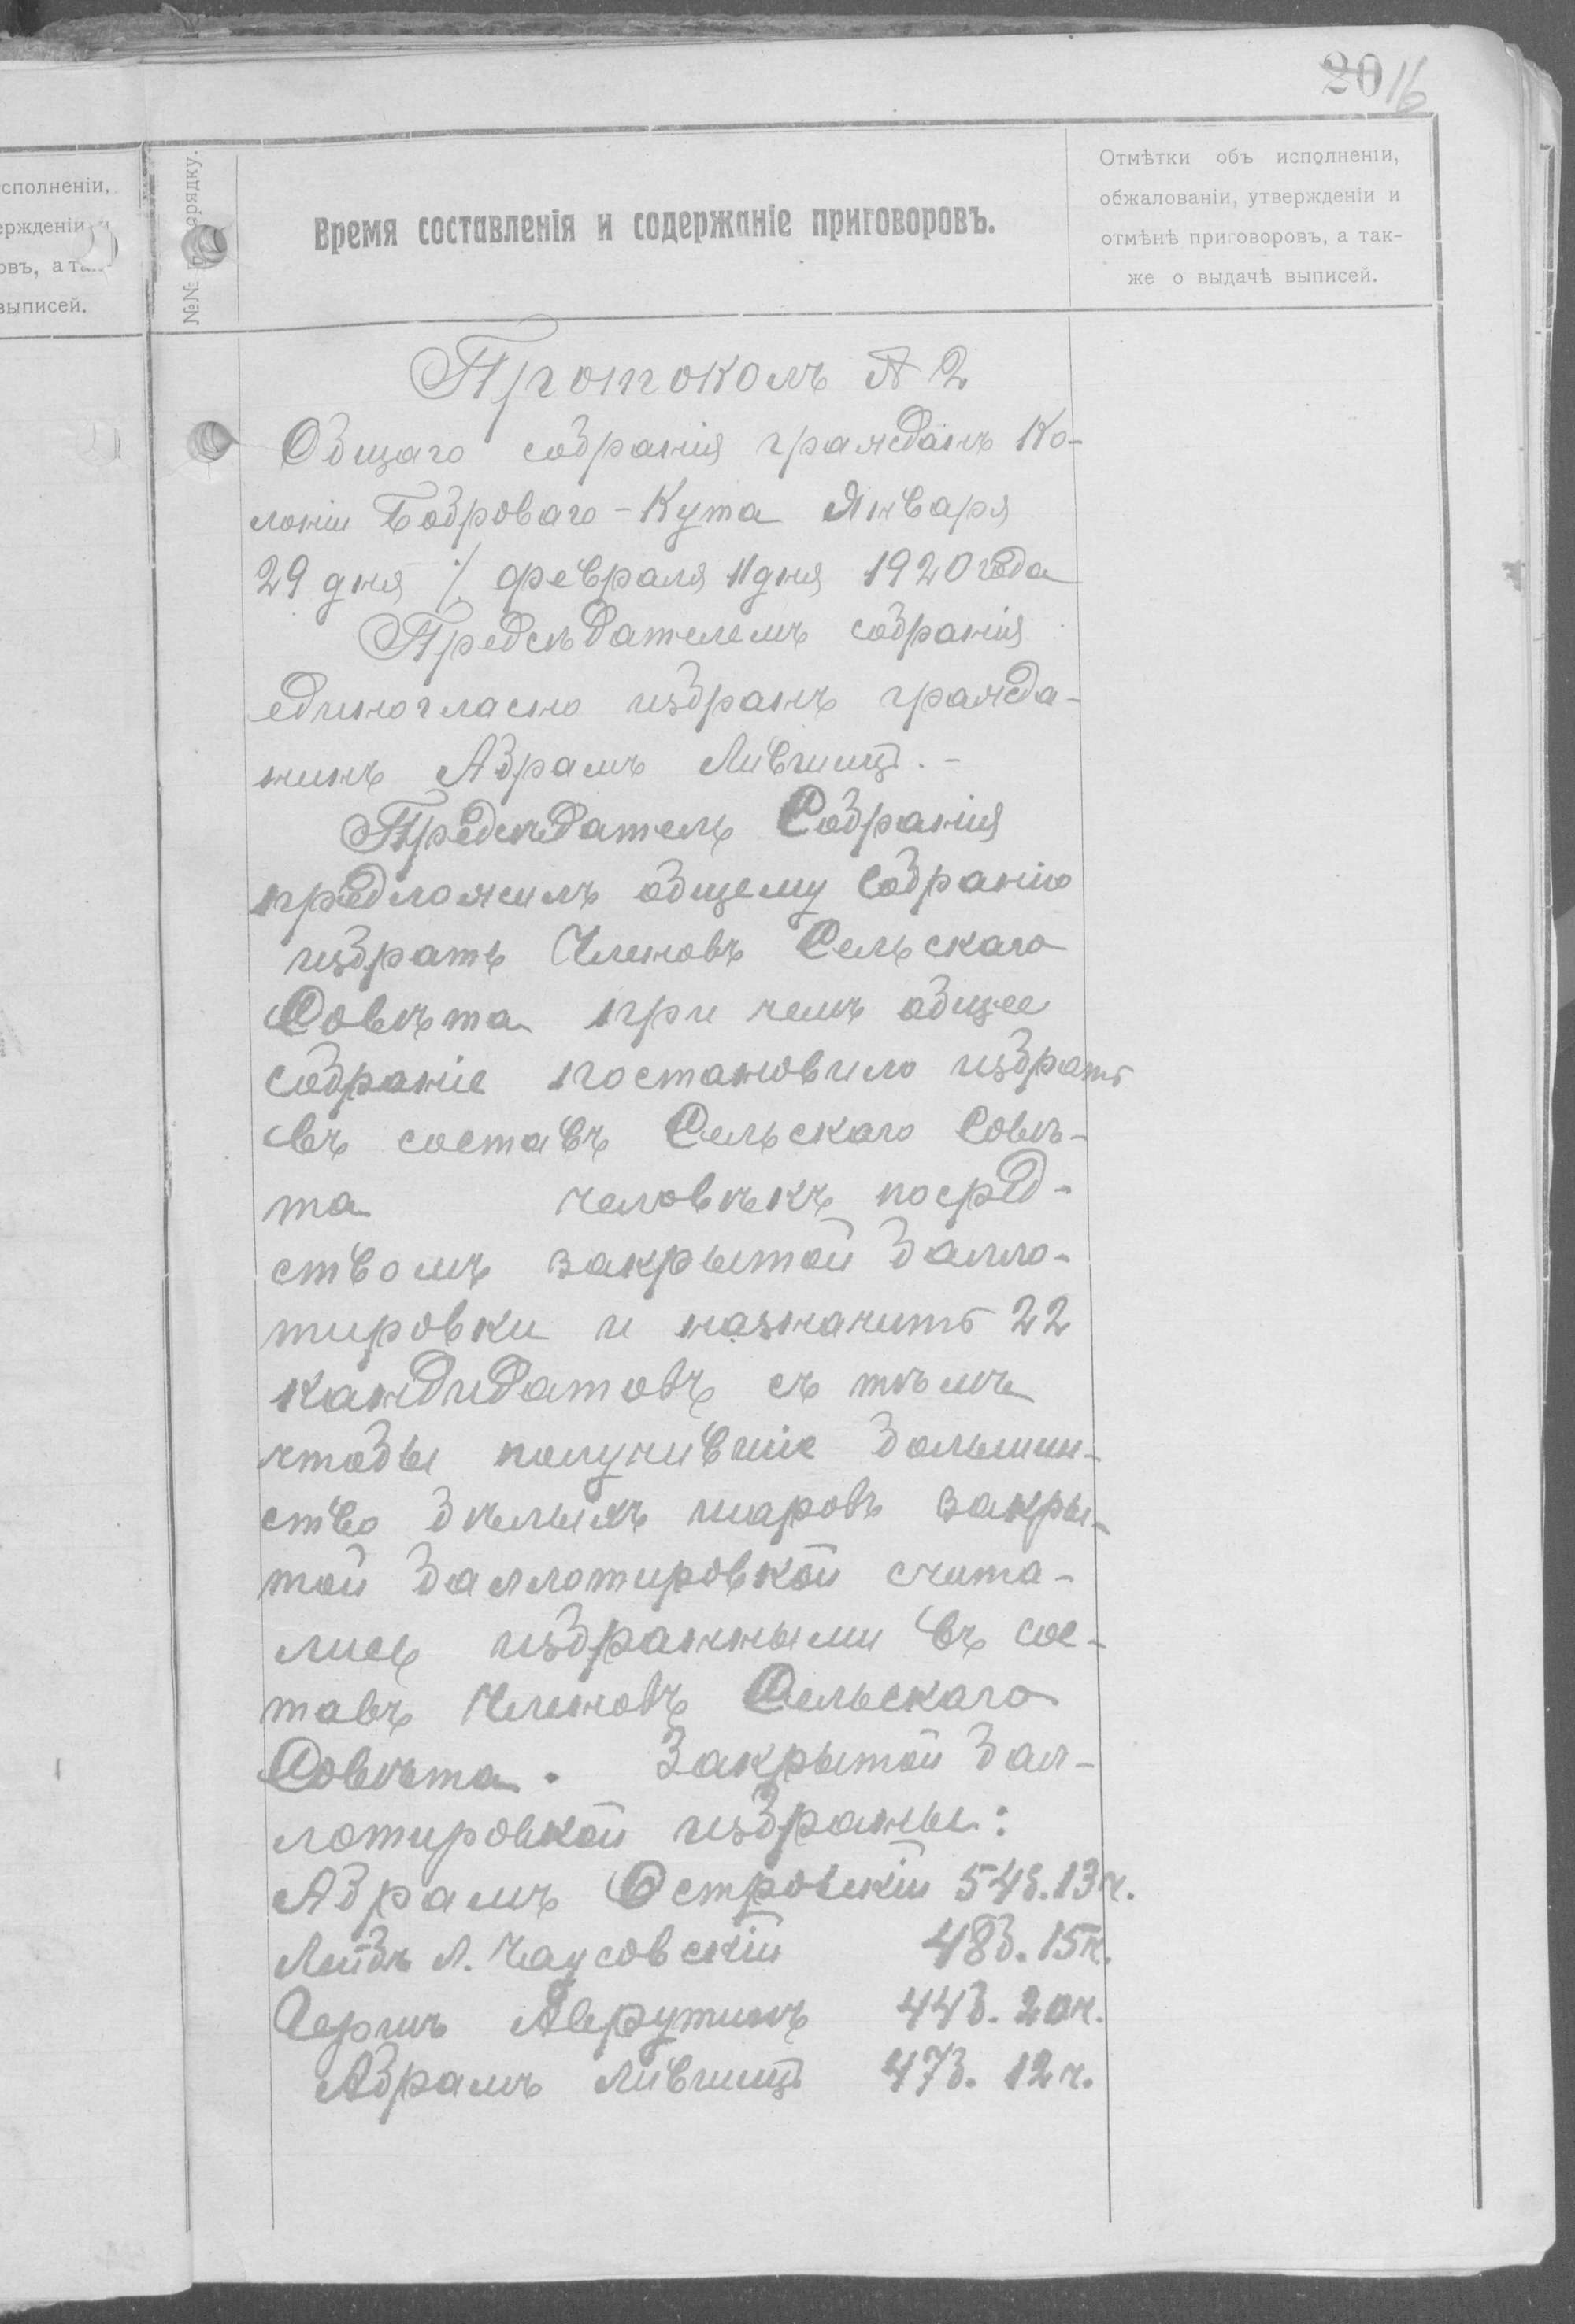 20 16
сполненіи,
ержденіи и
овъ, а так-
выписей.
№№ по порядку.
Время составленія и содержаніе приговоровъ.
Отмѣтки объ исполненіи,
обжалованіи, утвержденіи и
отмѣнѣ приговоровъ, а так-
же о выдачѣ выписей.
Протоколъ № 2
Общаго собранія гражданъ Ко-
лоніи Боброваго-Кута Января
29 дня /. февраля 11 дня 1920 года
Предсѣдателемъ собранія
единогласно избранъ гражда-
нинъ Абрамъ Лившиц. -
Предсѣдатель Собранія
предложилъ общему Собранію
избрать Членовъ Сельскаго
Совѣта при чемъ общее
собраніе постановило избрать
въ составъ Сельскаго Совѣ-
та человѣкъ посред-
ствомъ закрытой балло-
тировки и назначить 22
кандидатовъ съ тѣмъ
чтобы получившіе большин-
ство бѣлыхъ шаровъ закры-
той баллотировкой счита-
лись избранными въ сос-
тавъ Членовъ Сельскаго
Совѣта. Закрытой бал-
лотировкой избраны:
Абрамъ Островскій 54б. 13ч.
Лейбъ Л. Чаусовскій 48б. 15ч.
Гершъ Аврутинъ 44б. 20ч.
Абрамъ Лившиц 47б. 12ч.